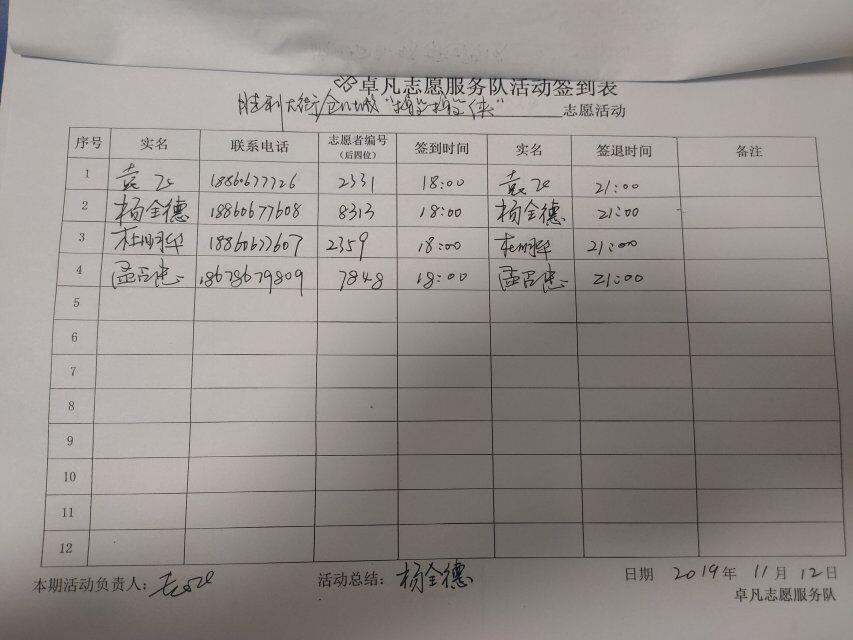 卓凡志愿服务队活动签到表
胜利大街 志愿活动
序号 实名 联系电话 志愿者编号（后四位） 签到时间 实名 签退时间 备注
1 袁飞 18860677726 2331 18:00 袁飞 21:00
2 杨全德 18860677608 8313 18:00 杨全德 21:00
3 杜明华 18860677607 2359 18:00 杜明华 21:00
4 孟召忠 18678679809 7848 18:00 孟召忠 21:00
5
6
7
8
9
10
11
12
本期活动负责人： 活动总结：杨全德 日期 2019年 11月 12日
卓凡志愿服务队